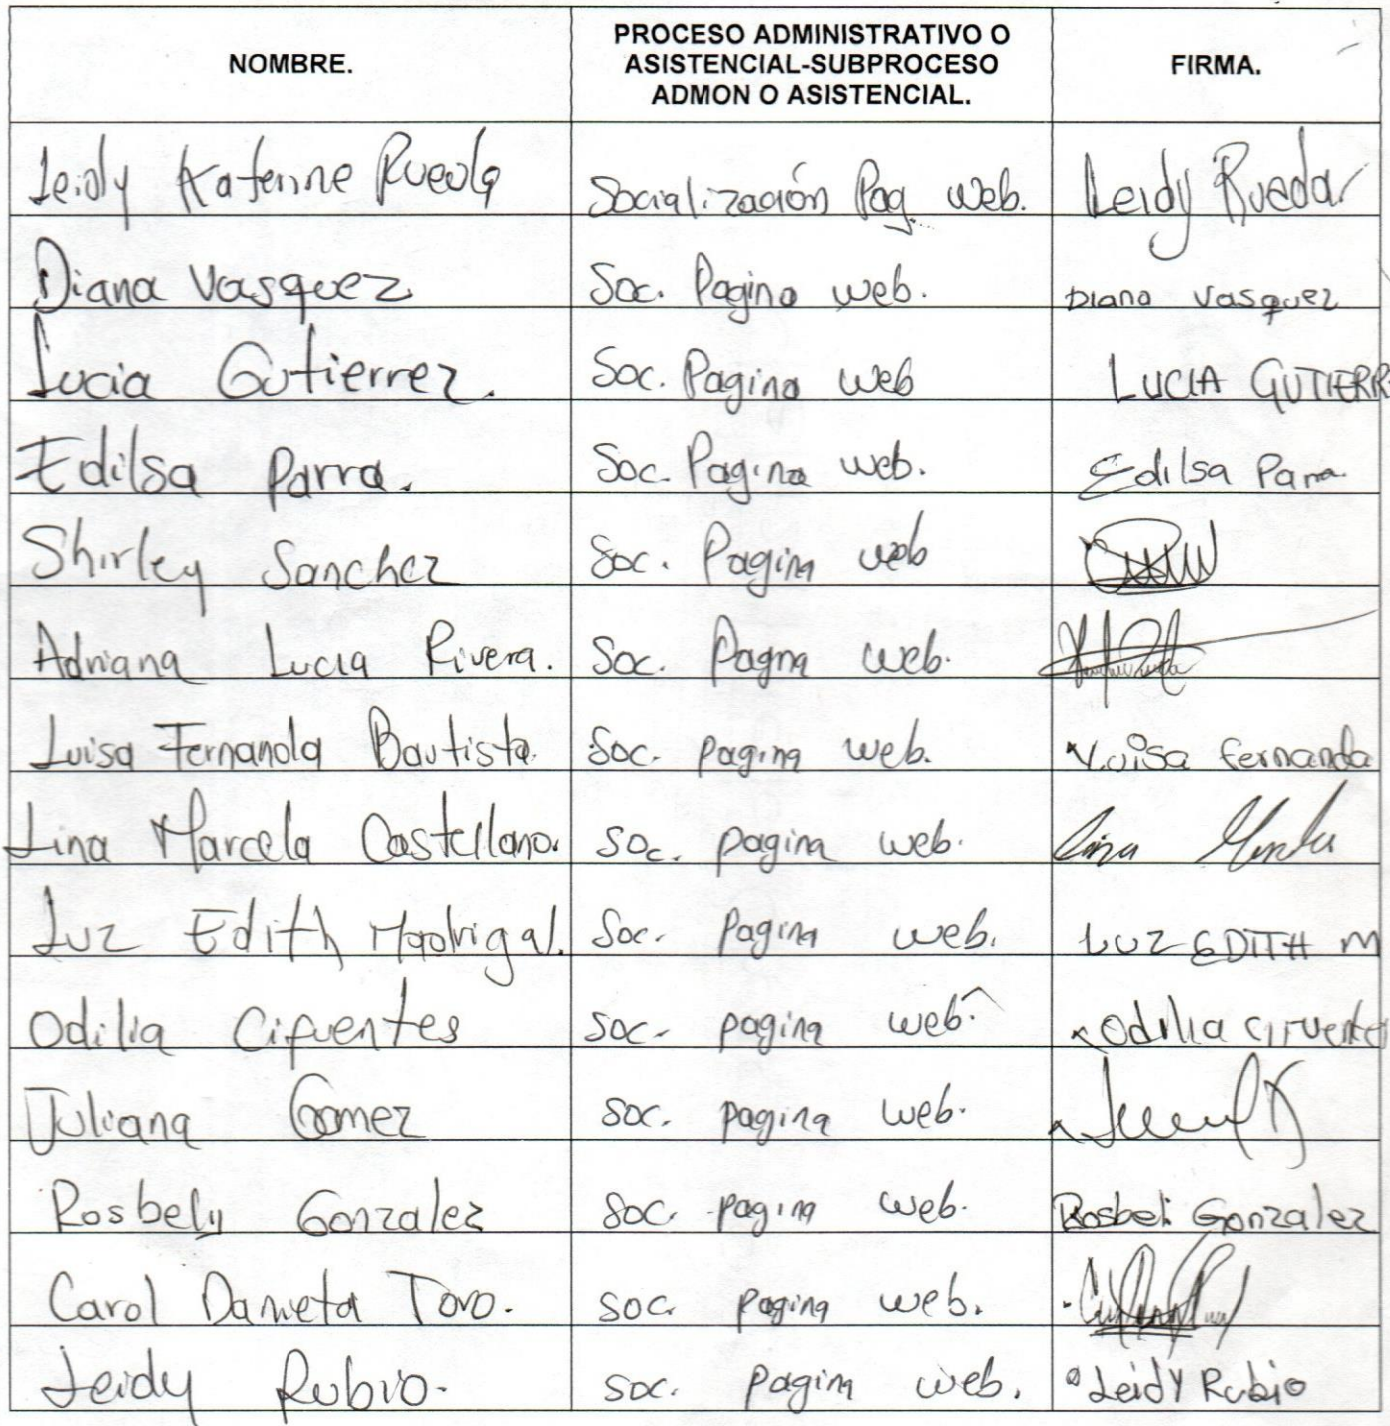 NOMBRE.
PROCESO ADMINISTRATIVO O
ASISTENCIAL-SUBPROCESO
ADMON O ASISTENCIAL.
FIRMA.
Leidy Katerine Rueda Socialización Pag. web. Leidy Rueda
Diana Vasquez Soc. Pagina web. Diana Vasquez
Lucia Gutierrez. Soc. Pagina web LUCIA GUTIERR
Edilsa Parra. Soc. Pagina web. Edilsa Parra.
Shirley Sanchez Soc. Pagina web
Adriana Lucia Rivera. Soc. Pagna web.
Luisa Fernanda Bautista. Soc. pagina web. Luisa fernanda
Lina Marcela Castellano. Soc. pagina web. Lina
Luz Edith Madrigal. Soc. Pagina web. LUZ EDITH M
Odilia Cifuentes Soc. pagina web. Odilia cifuentes
Juliana Gomez Soc. pagina web.
Rosbely Gonzalez Soc. pagina web. Rosbeli Gonzalez
Carol Toro. Soc. pagina web.
Leidy Rubio. Soc. pagina web. Leidy Rubio